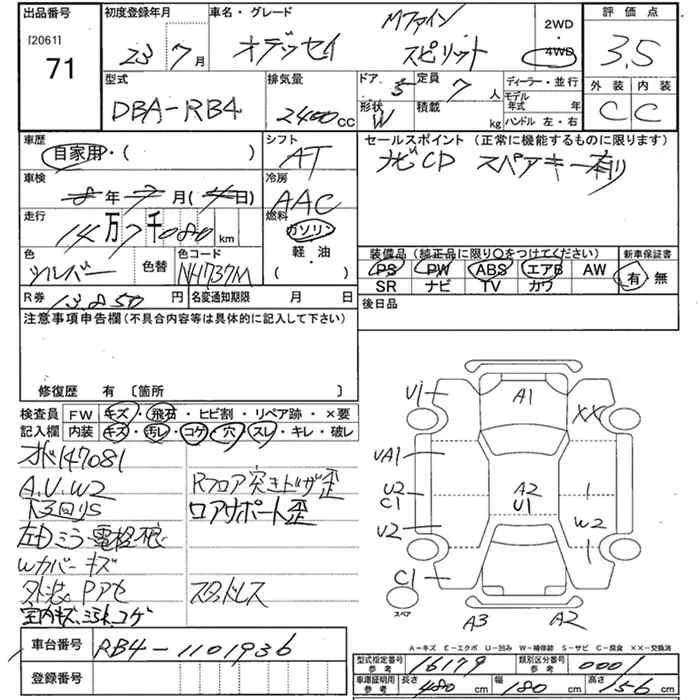 出品番号 初度登録年月 車名・グレード 2WD 評価点
[2061] 71 23 7月 オデッセイ Mファイン スピリット 4WD 3.5
型式 排気量 ドア 5 定員 7人 ディーラー・並行 外装 内装
DBA-RB4 2400cc 形状 W 積載 kg モデル年式 年 ハンドル 左・右 C C
車歴 シフト セールスポイント (正常に機能するものに限ります)
自家用・( ) AT ナビCD スペアキー有り
車検 冷房
8年 7月(4日) AAC
走行 燃料
14万7千080km ガソリン
色 色替 色コード 軽・油 装備品(純正品に限り○をつけてください) 新車保証書
シルバー NH737M ( ) PS PW ABS エアB AW 有 無
SR ナビ TV カワ
R券 13850円 名変通知期限 月 日 後日品
注意事項申告欄(不具合内容等は具体的に記入して下さい)
修復歴 有 〔箇所 〕
検査員 FW キズ・飛石・ヒビ割・リペア跡・×要
記入欄 内装 キズ・汚レ・コゲ・穴・スレ・キレ・破レ
オド147081
A.U.W2 Rフロア突きトゲ歪
下回りS ロアサポート歪
左Dミラー電格不良
Wカバーキズ
外装Pアセ スタッドレス
室内キズ、ヨゴレ、コゲ
U1 A1 XX
UA1
U2 A2
C1 U1
U2 W2
C1
スペア
A3 A2
A-キズ E-エクボ U-凹み W-補修跡 S-サビ C-腐食 XX-交換済
車台番号 RB4-1101936
登録番号
型式指定番号 参考 16179 類別区分番号 参考 0001
車庫証明用 参考 長さ 480cm 幅 180cm 高さ 156cm